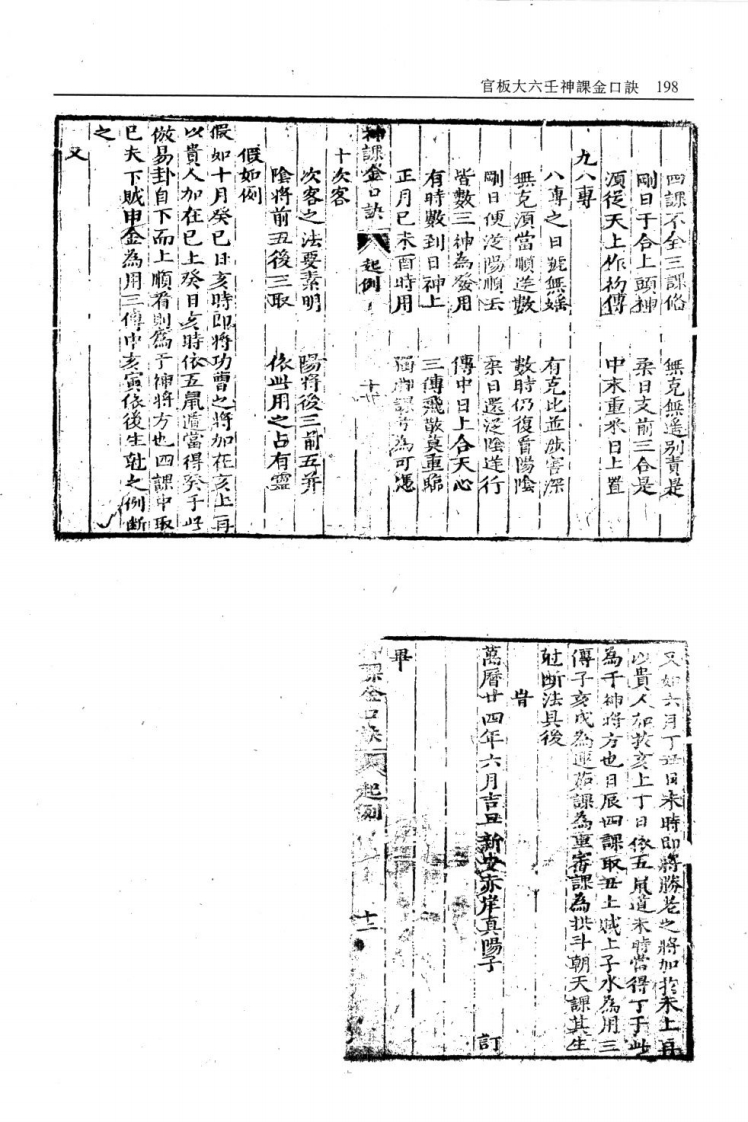 官板大六壬神課金口訣 198
四課不全三課俻 無克無遙別責是
剛日干合上頭神 柔日支前三合是
須從天上作初傳 中末重來日上置
九八專
八專之日號無媱 有克比並涉害深
無克須當順逆數 數時仍復看陽陰
剛日便從陽順去 柔日還從陰逆行
皆數三神為發用 傳中日上合天心
有時數到日神上 三傳飛散莫重臨
正月巳未酉時用 獨脚課者為可憑
神課金口訣 起例
十次客
次客之法要素明 陽將後三前五并
陰將前五後三取 依此用之占有靈
假如例
假如十月癸巳日亥時即將功曹之將加在亥上再
以貴人加在巳上癸日亥時依五鼠遁當得癸于此
倣易卦自下而上順看則為于神將方也四課中取
巳夫下賊申金為用三傳中亥寅依後生尅之例斷
之
又
又如六月丁丑日未時即將勝光之將加於未上再
以貴人加於亥上丁日依五鼠遁未時當得丁于此
為干神將方也日辰四課取丑上賊上子水為用三
傳子亥戌為連茹課為重審課為拱斗朝天課其生
尅斷法具後
旹
萬曆廿四年六月吉旦新安赤岸真陽子 訂
畢
課金口訣 起例 十二